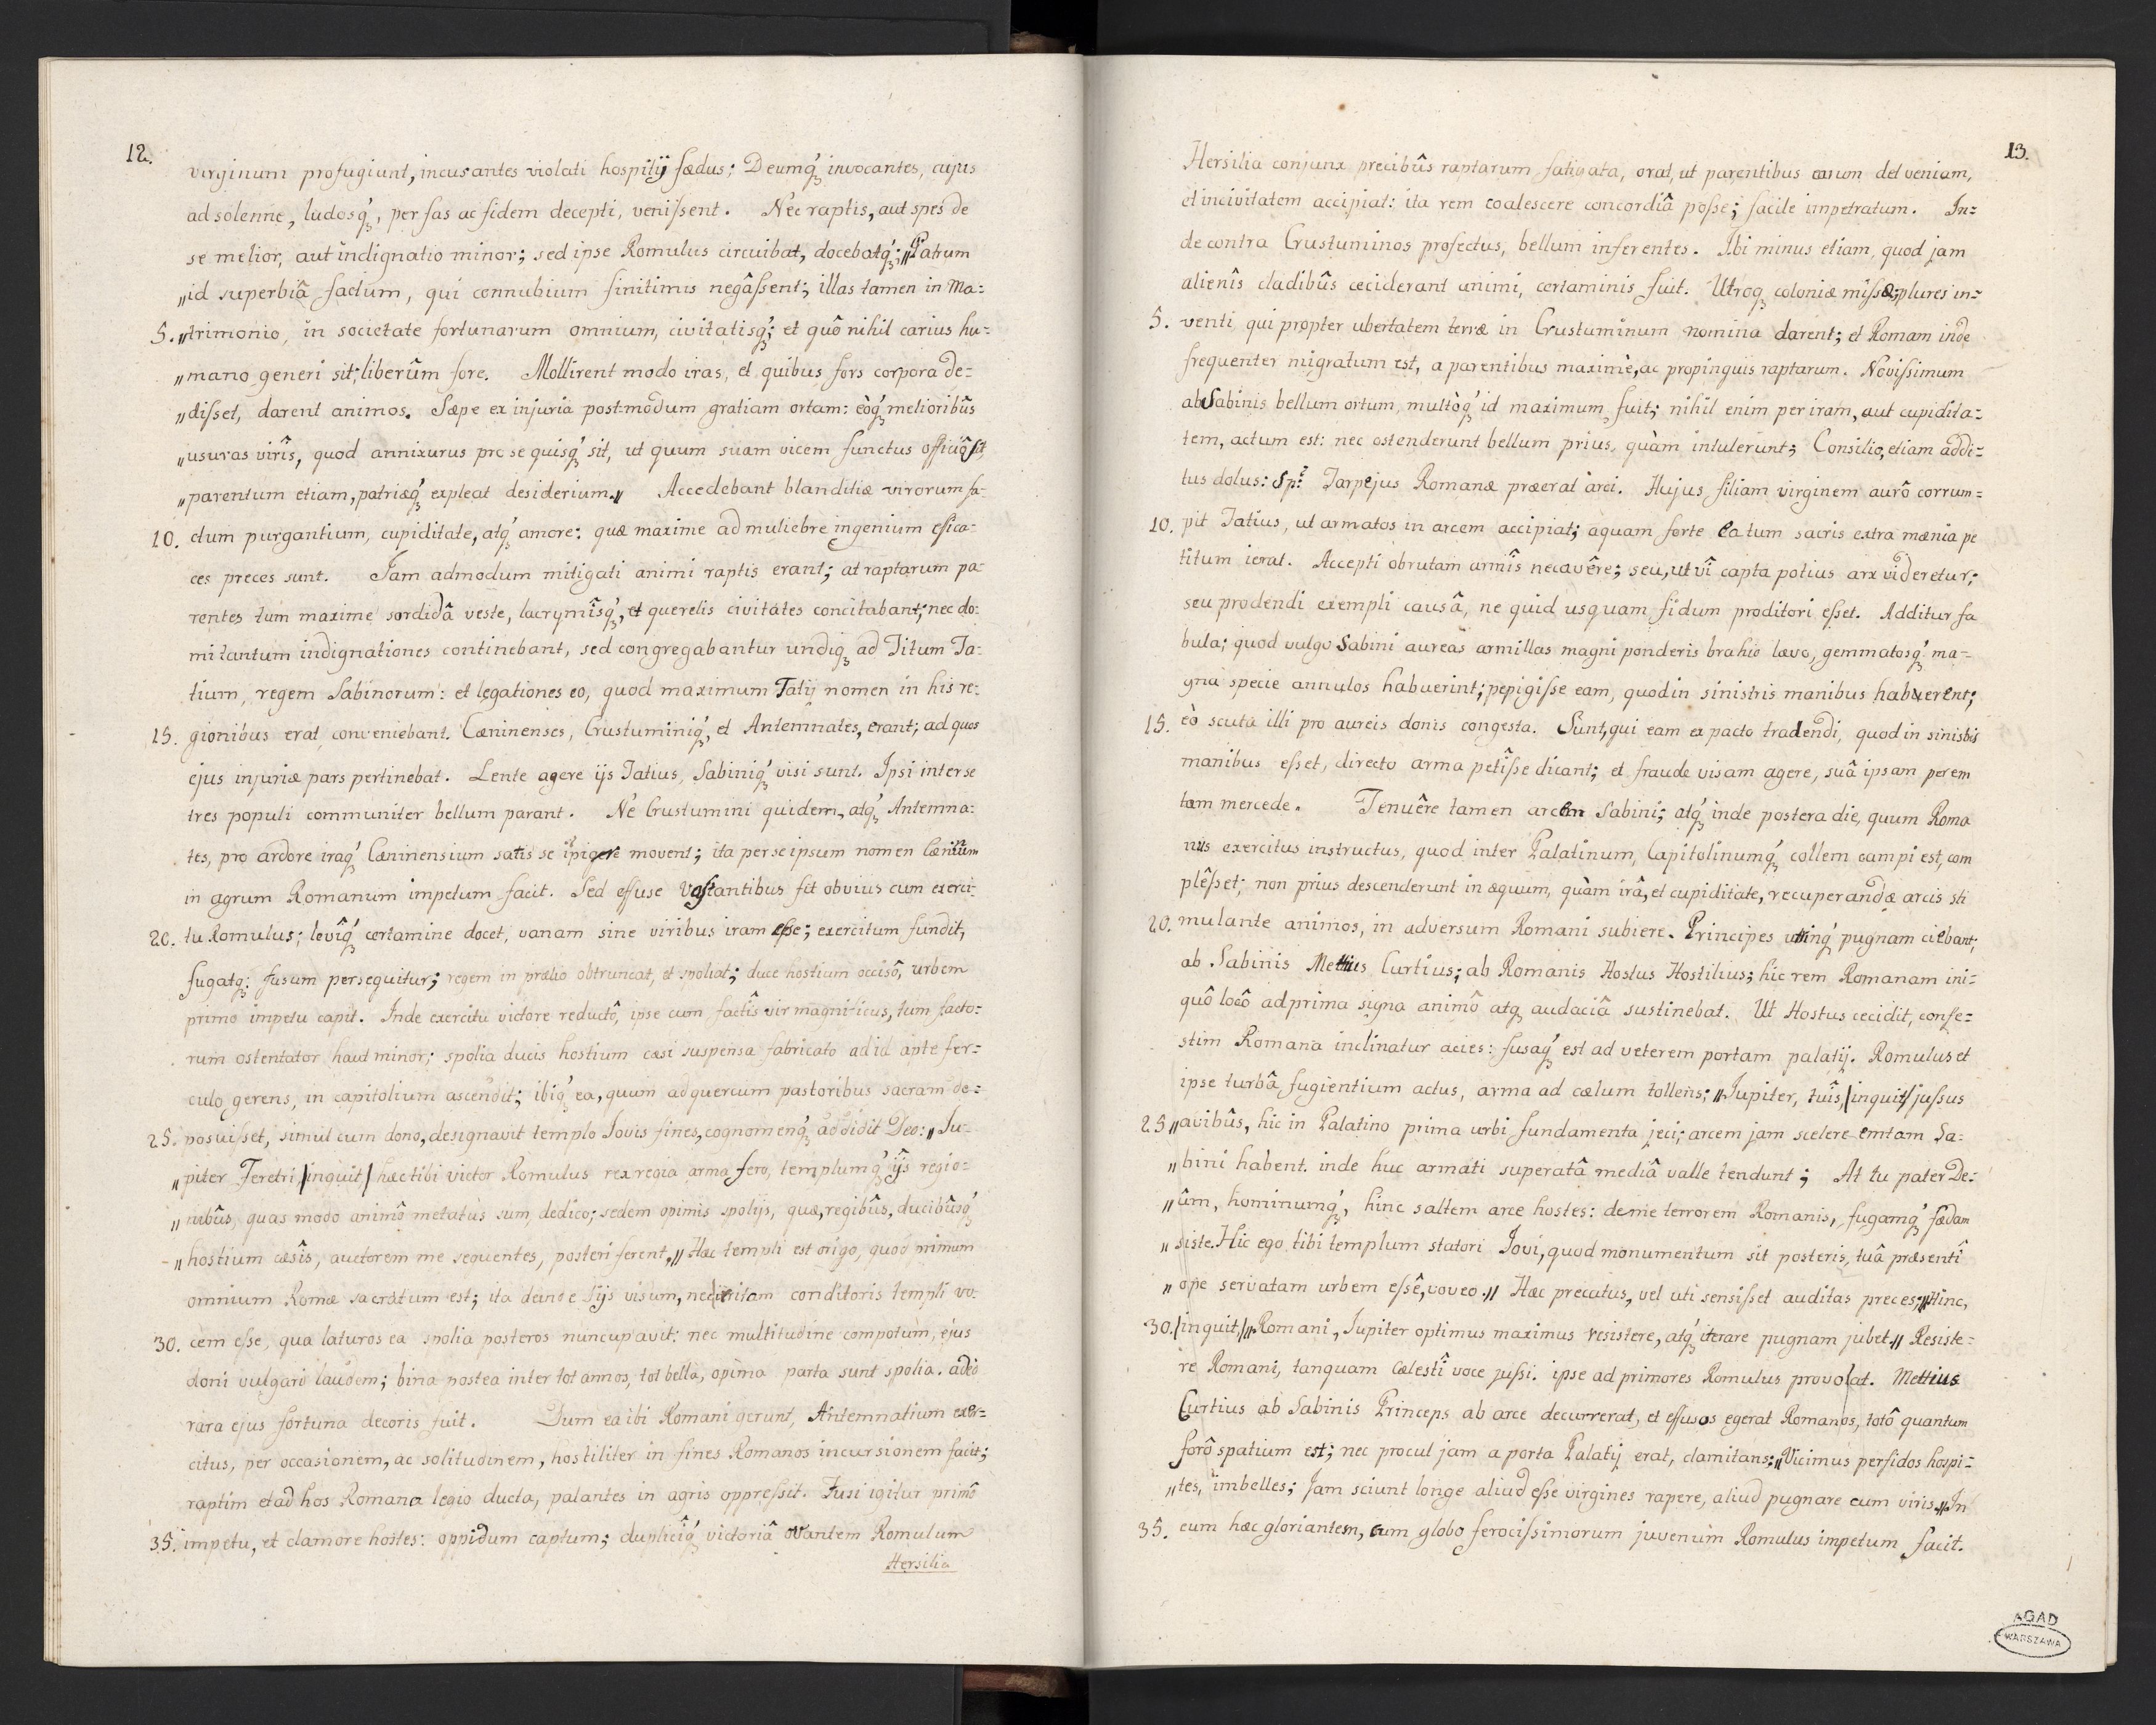 12.
virginum profugiunt, incusantes violati hospitij fædus; Deumq́ꝫ invocantes, cujus
ad solenne, ludosq́ꝫ, per fas ac fidem decepti, venissent. Nec raptis, aut spes de
se melior, aut indignatio minor; sed ipse Romulus circuibat, docebatq́ꝫ; „Patrum
„id superbiâ factum, qui connubium finitimis negâssent; illas tamen in Ma=
5. „trimonio, in societate fortunarum omnium, civitatisq́ꝫ; et quô nihil carius hu=
„mano generi sit; liberûm fore. Mollirent modo iras, et quibus fors corpora de=
„disset, darent animos. Sæpe ex injuria postmodum gratiam ortam: eòq́ꝫ melioribûs
„usuras virîs, quod annixurus pro se quisq́ꝫ sit, ut quum suam vicem functus officiô sit,
„parentum etiam, patriæq́ꝫ expleat desiderium.„ Accedebant blanditiæ virorum fa-
10. ctum purgantium, cupiditate, atq́ꝫ amore: quæ maxime ad muliebre ingenium efica-
ces preces sunt. Jam admodum mitigati animi raptis erant; at raptarum pa-
rentes tum maxime sordidâ veste, lacrymîsq́ꝫ, et querelis civitates concitabant; nec do=
mi tantum indignationes continebant, sed congregabantur undiqꝫ ad Titum Ta=
tium, regem Sabinorum: et legationes eo, quod maximum Tatij nomen in his re=
15. gionibus erat, conveniebant. Cæninenses, Crustuminiq́ꝫ, et Antemnates, erant; ad quos
ejus injuriæ pars pertinebat. Lente agere ijs Tatius, Sabiniq́ꝫ visi sunt. Ipsi inter se
tres populi communiter bellum parant. Ne Crustumini quidem, atq́ꝫ Antemna=
tes, pro ardore iraq́ꝫ Cæninensium satis se movent; ita per se ipsum nomen Cæninum
in agrum Romanum impetum facit. Sed effuse vastantibus fit obvius cum exerci-
20. tu Romulus; levîq́ꝫ certamine docet, vanam sine viribus iram esse; exercitum fundit,
fugatqꝫ: fusum persequitur; regem in prælio obtruncat, et spoliat; duce hostium occisô, urbem
primo impetu capit. Inde exercitu victore reductô, ipse cum factîs vir magnificus, tum facto=
rum ostentator haut minor; spolia ducis hostium cæsi suspensa fabricato ad id apte fer=
culo gerens, in capitolium ascendit; ibiq́ꝫ ea, quum ad quercum pastoribus sacram de=
25. posuisset, simul cum dono, designavit templo Jovis fines, cognomenq́ꝫ addidit Deo: „Ju-
„piter Feretri, /inquit,/ hæc tibi victor Romulus rex regia arma fero, templumq́ꝫ ijs regio=
„nibûs, quas modo animô metatus sum, dedico; sedem opimis spolijs, quæ, regibûs, ducibûsq́ꝫ
„hostium cæsîs, auctorem me sequentes, posteri ferent.„ Hæc templi est origo, quod primum
omnium Romæ sacratum est; ita deinde Dijs visum, nec irritam conditoris templi vo-
30. cem esse, qua laturos ea spolia posteros nuncupavit: nec multitudine compotum, ejus
doni vulgari laudem; bina postea inter tot annos, tot bella, opima parta sunt spolia. adeo
rara ejus fortuna decoris fuit. Dum ea ibi Romani gerunt, Antemnatium exer=
citus, per occasionem, ac solitudinem, hostiliter in fines Romanos incursionem facit;
raptim et ad hos Romana legio ducta, palantes in agris oppressit. Fusi igitur primô
35. impetu, et clamore hostes: oppidum captum; dupliciq́ꝫ victoriâ ovantem Romulum
Hersilia
13.
Hersilia conjunx precibûs raptarum fatigata, orat, ut parentibus earum det veniam,
et in civitatem accipiat: ita rem coalescere concordiâ posse; facile impetratum. In=
de contra Crustuminos profectus, bellum inferentes. Ibi minus etiam, quod jam
alienîs cladibûs ceciderant animi, certaminis fuit. Utroqꝫ coloniæ missæ; plures in=
5. venti qui propter ubertatem terræ in Crustuminum nomina darent; et Romam inde
frequenter migratum est, a parentibus maximè, ac propinquis raptarum. Novissimum
ab Sabinis bellum ortum, multòq́ꝫ id maximum fuit; nihil enim per iram, aut cupidita=
tem, actum est: nec ostenderunt bellum prius, quàm intulerunt; Consilio, etiam addi=
tus dolus: Sp: Tarpejus Romanæ præerat arci. Hujus filiam virginem aurô corrum=
10. pit Tatius, ut armatos in arcem accipiat; aquam forte ea tum sacris extra mænia pe
titum ierat. Accepti obrutam armîs necavêre; seu, ut vî capta potius arx videretur;
seu prodendi exempli causâ, ne quid usquam fidum proditori esset. Additur fa
bula; quod vulgo Sabini aureas armillas magni ponderis brahio lævo, gemmatosq́ꝫ ma=
gna specie annulos habuerint; pepigisse eam, quod in sinistris manibus haberent;
15. eò scuta illi pro aureis donis congesta. Sunt, qui eam ex pacto tradendi, quod in sinistris
manibus esset, directo arma petîsse dicant; et fraude visam agere, suâ ipsam perem
tam mercede. Tenuêre tamen arcem Sabini; atq́ꝫ inde postera die, quum Roma
nus exercitus instructus, quod inter Palatinum, Capitolinumq́ꝫ collem campi est, com
plêsset; non prius descenderunt in æquum, quàm irâ, et cupiditate, recuperandæ arcis sti
20. mulante animos, in adversum Romani subiere. Principes utrinq́ꝫ pugnam ciebant;
ab Sabinis Mettius Curtius; ab Romanis Hostus Hostilius; hic rem Romanam ini=
quô locô ad prima signa animô atqꝫ audaciâ sustinebat. Ut Hostus cecidit, confe=
stim Romana inclinatur acies: fusaq́ꝫ est ad veterem portam palatij. Romulus et
ipse turbâ fugientium actus, arma ad cælum tollens; „Jupiter, tuîs, /inquit/ jussus
25 „avibûs, hic in Palatino prima urbi fundamenta jeci; arcem jam scelere emtam Sa=
„bini habent. inde huc armati superatâ mediâ valle tendunt; At tu pater De=
„ûm, hominumq́ꝫ, hinc saltem arce hostes: deme terrorem Romanis, fugamq́ꝫ fædam
„siste. Hic ego tibi templum statori Jovi, quod monumentum sit posteris, tuâ præsentî
„ope servatam urbem essê, voveo.„ Hæc precatus, vel uti sensisset auditas preces; „Hinc,
30. /inquit,/ „Romani, Jupiter optimus maximus resistere, atq́ꝫ iterare pugnam jubet.„ Resiste=
re Romani, tanquam cælestî voce jussi. ipse ad primores Romulus provolat. Mettius
Curtius ab Sabinis Princeps ab arce decurrerat, et effusos egerat Romanos, totô quantum
forô spatium est; nec procul jam a porta Palatij erat, clamitans; „Vicimus perfidos hospi=
„tes, imbelles; Jam sciunt longe aliud esse virgines rapere, aliud pugnare cum viris.„ In
35. eum hæc gloriantem, cum globo ferocissimorum juvenum Romulus impetum facit.
AGAD
WARSZAWA